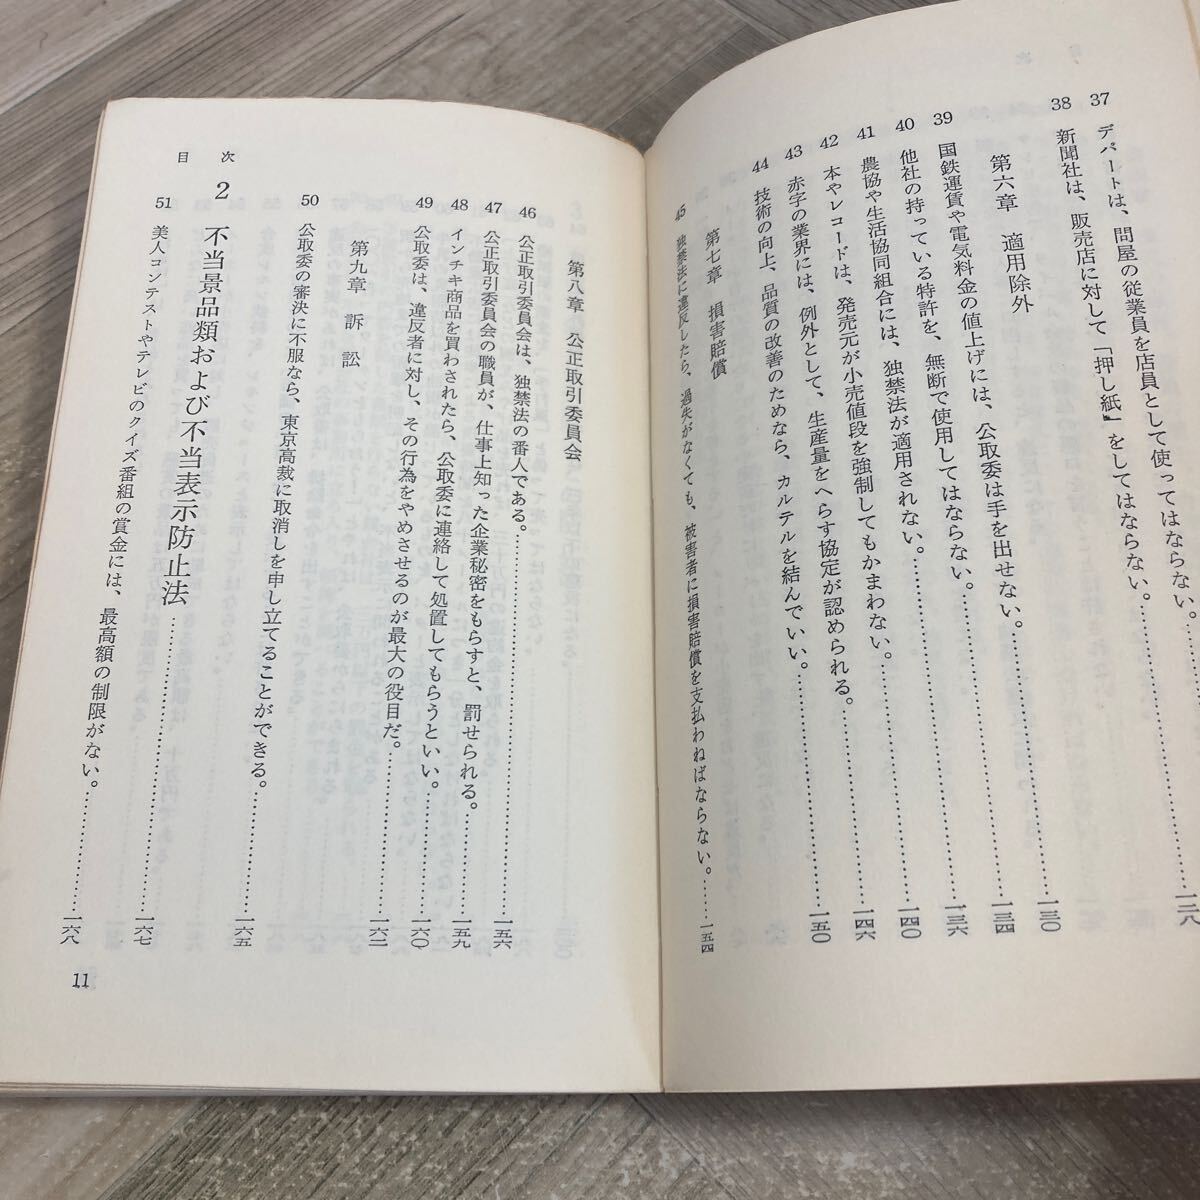 37 デパートは、問屋の従業員を店員として使ってはならない。…………一二八
38 新聞社は、販売店に対して「押し紙」をしてはならない。…………一三〇
第六章 適用除外
39 国鉄運賃や電気料金の値上げには、公取委は手を出せない。…………一三四
40 他社の持っている特許を、無断で使用してはならない。…………一三六
41 農協や生活協同組合には、独禁法が適用されない。…………一四〇
42 本やレコードは、発売元が小売値段を強制してもかまわない。…………一四六
43 赤字の業界には、例外として、生産量をへらす協定が認められる。…………一五〇
44 技術の向上、品質の改善のためなら、カルテルを結んでいい。
第七章 損害賠償
45 独禁法に違反したら、過失がなくても、被害者に損害賠償を支払わねばならない。……一五四
第八章 公正取引委員会
46 公正取引委員会は、独禁法の番人である。…………一五六
47 公正取引委員会の職員が、仕事上知った企業秘密をもらすと、罰せられる。…………一五九
48 インチキ商品を買わされたら、公取委に連絡して処置してもらうといい。…………一六〇
49 公取委は、違反者に対し、その行為をやめさせるのが最大の役目だ。…………一六二
第九章 訴訟
50 公取委の審決に不服なら、東京高裁に取消しを申し立てることができる。…………一六五
2 不当景品類および不当表示防止法…………一六七
51 美人コンテストやテレビのクイズ番組の賞金には、最高額の制限がない。…………一六八
目 次
11